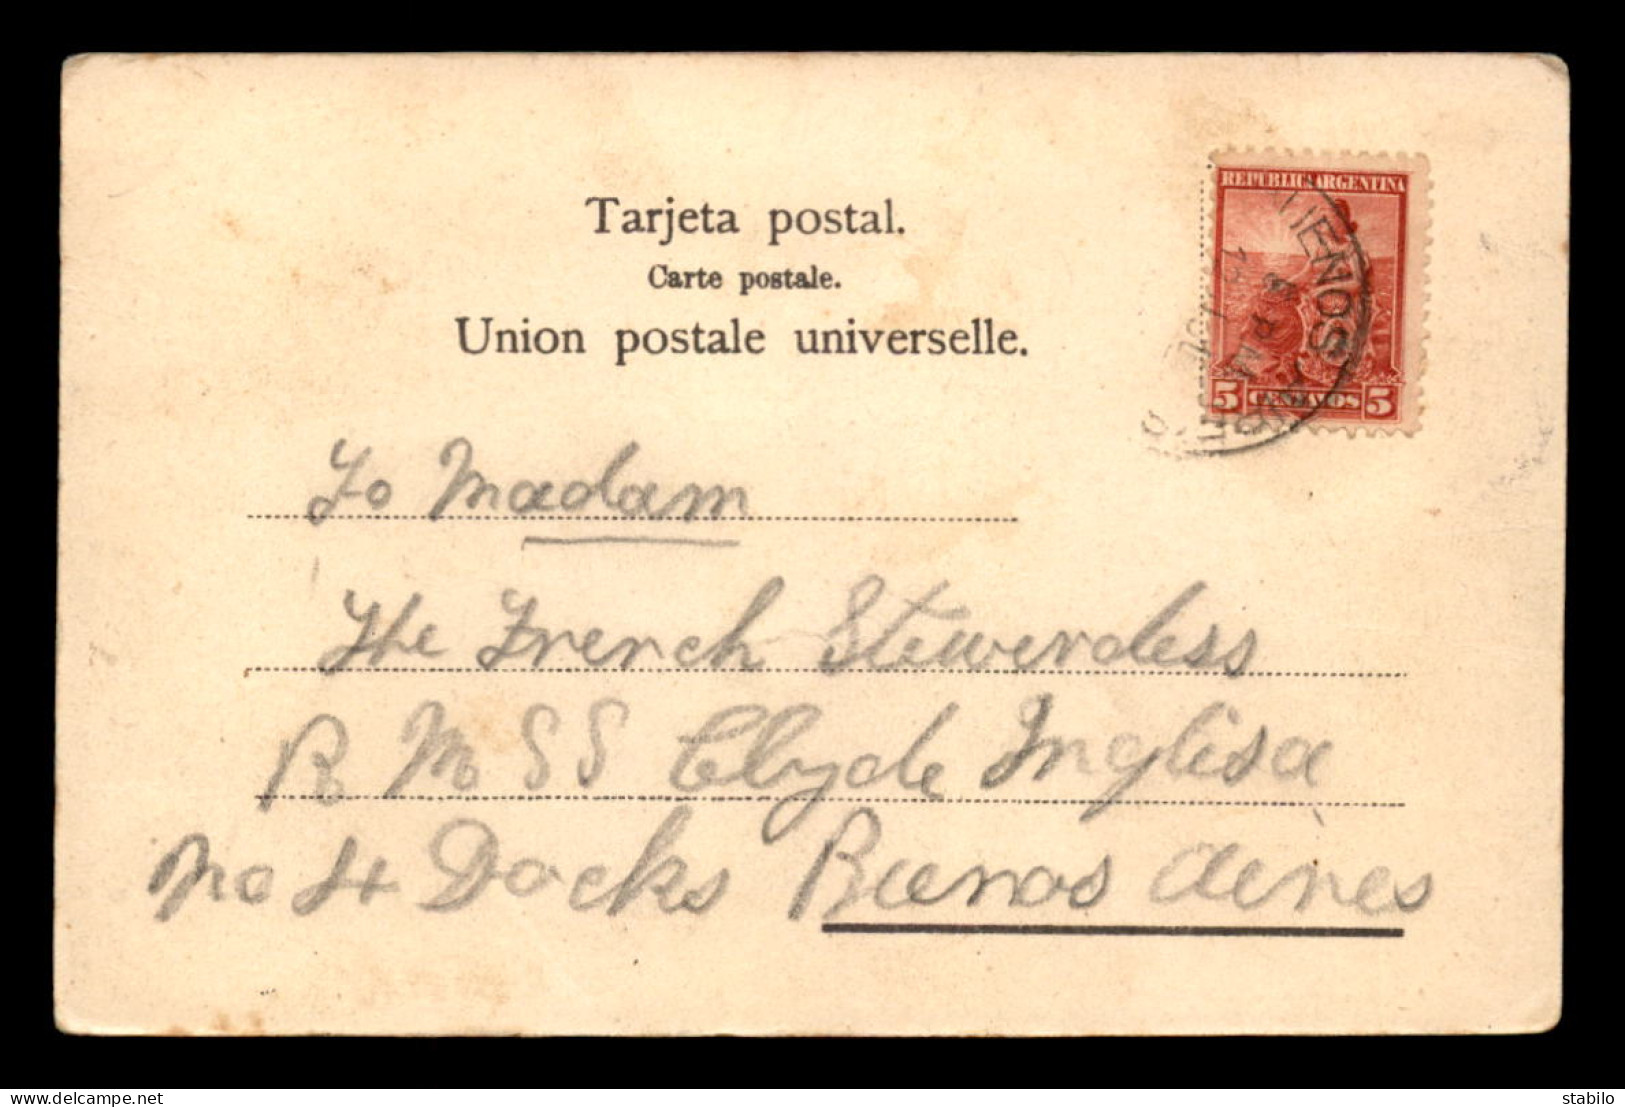 Tarjeta postal.
Carte postale.
Union postale universelle.
REPUBLICA ARGENTINA
5 CENTAVOS 5
To Madam
The French Stewerdess
R M S S Clyde Inglisa
No 4 Docks Buenos Aires
stabilo